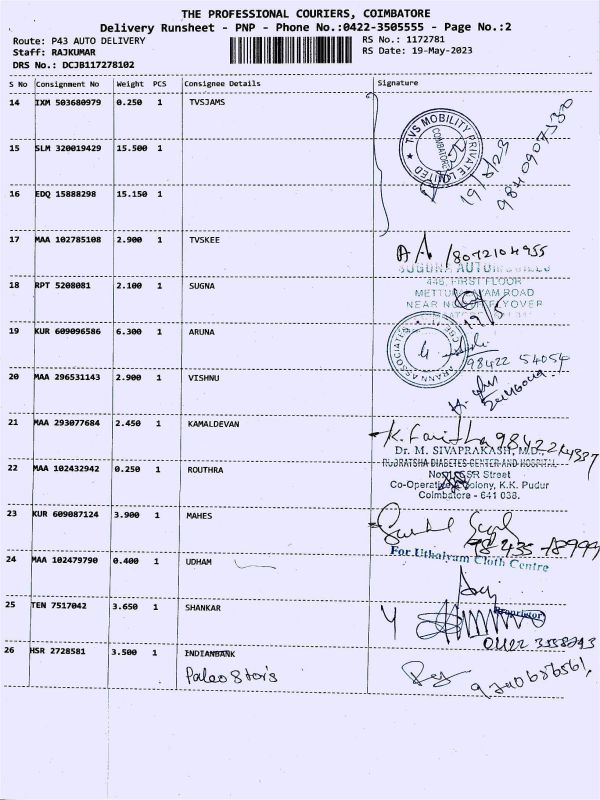 THE PROFESSIONAL COURIERS, COIMBATORE
Delivery Runsheet - PNP - Phone No.:0422-3505555 - Page No.:2
Route: P43 AUTO DELIVERY RS No.: 1172781
Staff: RAJKUMAR RS Date: 19-May-2023
DRS No.: DCJB117278102
S No Consignment No Weight PCS Consignee Details Signature
14 IXM 503680979 0.250 1 TVSJAMS
TVS MOBILITY PRIVATE LIMITED
COIMBATORE
19/5/23
9840907530
15 SLM 320019429 15.500 1
16 EDQ 15888298 15.150 1
17 MAA 102785108 2.900 1 TVSKEE
/8072104955
18 RPT 5208081 2.100 1 SUGNA
SUGUNA
446, FIRST FLOOR
ROAD
NEAR
19/5
19 KUR 609096586 6.300 1 ARUNA
ARANN ASSOCIATES
98422 54054
20 MAA 296531143 2.900 1 VISHNU
21 MAA 293077684 2.450 1 KAMALDEVAN
Dr. M. SIVAPRAKASH, M.D.,
22 MAA 102432942 0.250 1 ROUTHRA
RUDRATSHA DIABETES CENTER AND HOSPITAL
Street
Colony, K.K. Pudur
Coimbatore - 641 038.
23 KUR 609087124 3.900 1 MAHES
98435-18999
For Uthaiyam Cloth Centre
24 MAA 102479790 0.400 1 UDHAM
Proprietor
25 TEN 7517042 3.650 1 SHANKAR
26 HSR 2728581 3.500 1 INDIANBANK